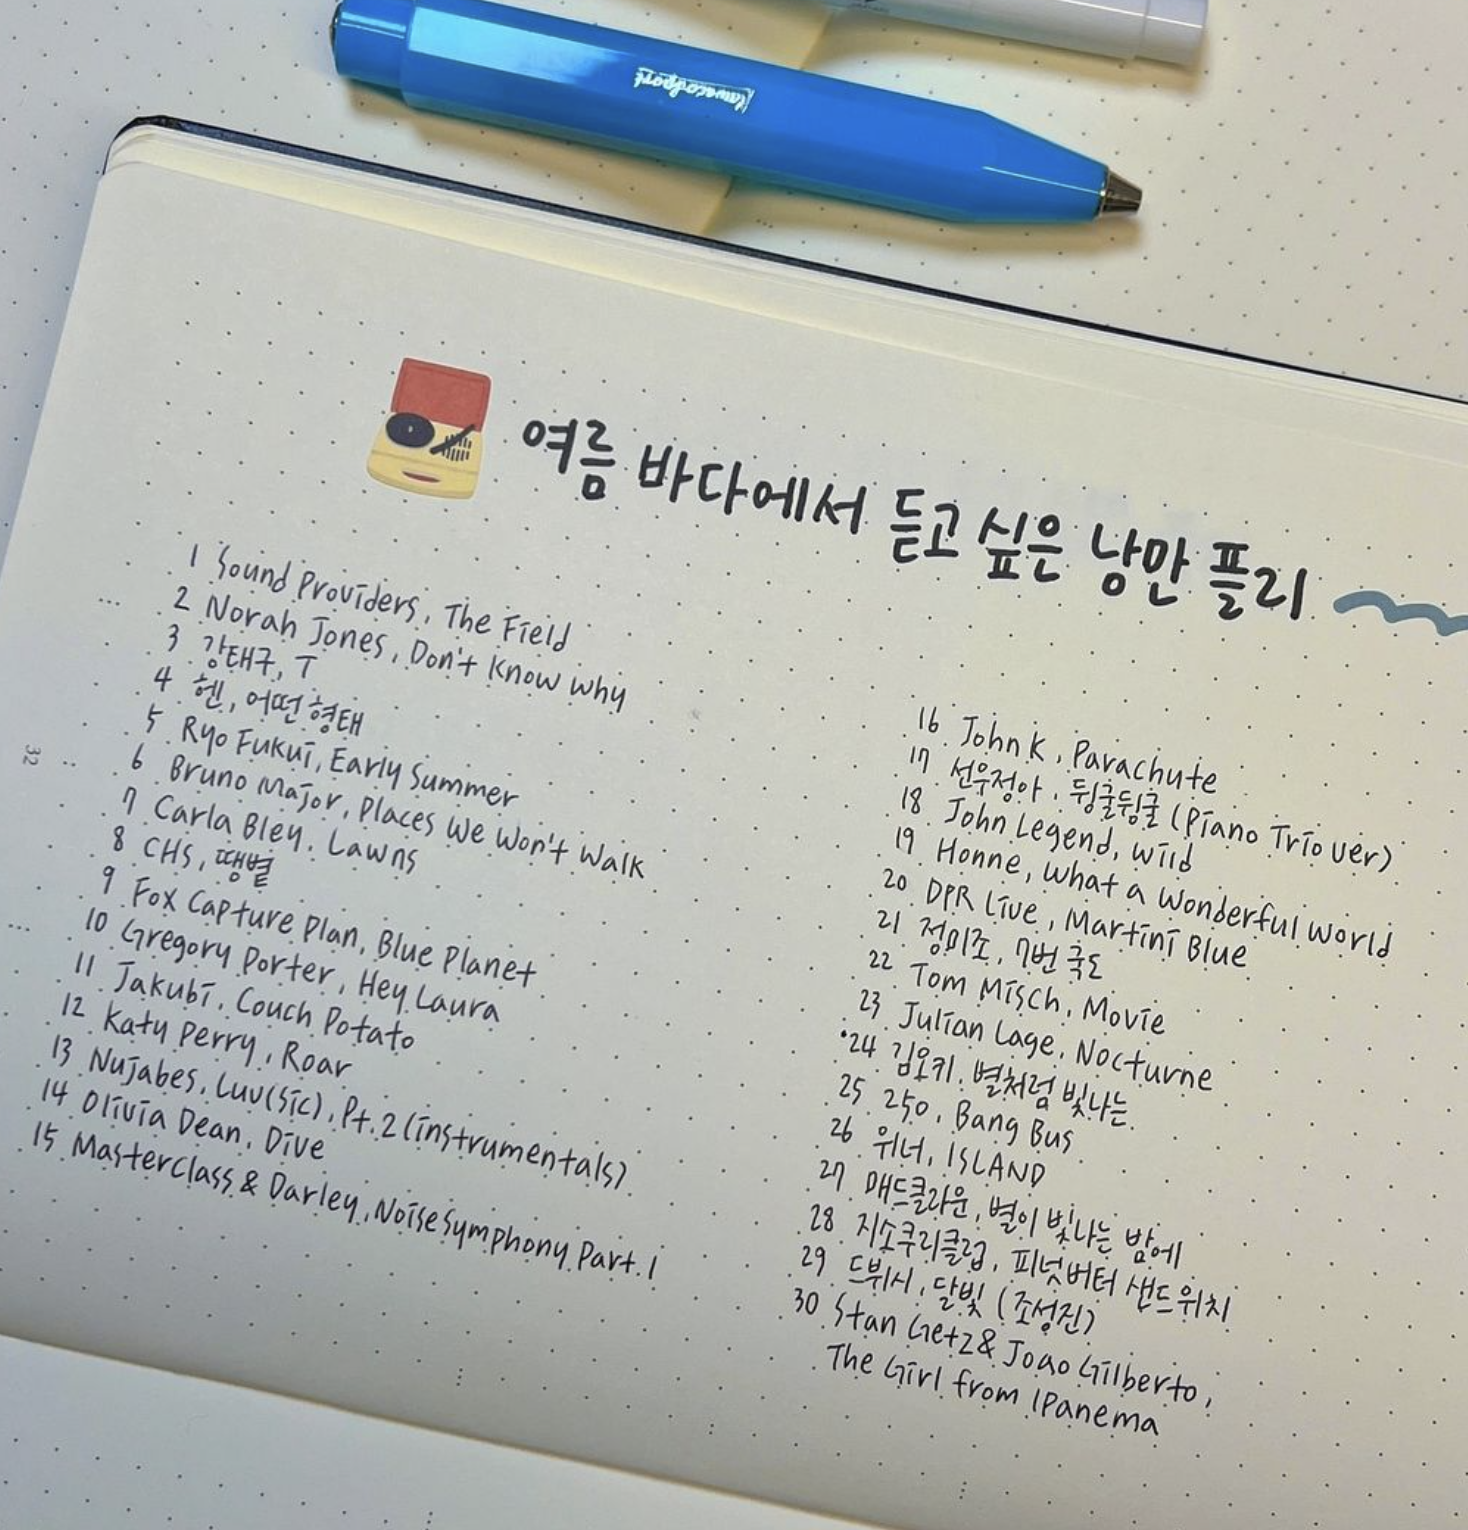 Kaweco Sport
여름 바다에서 듣고 싶은 낭만 플리
1 Sound Providers, The Field
2 Norah Jones, Don't Know Why
3 강태구, T
4 헨, 어떤 형태
5 Ryo Fukui, Early Summer
6 Bruno Major, Places We Won't Walk
7 Carla Bley, Lawns
8 CHS, 땡볕
9 Fox Capture Plan, Blue Planet
10 Gregory Porter, Hey Laura
11 Jakubi, Couch Potato
12 Katy Perry, Roar
13 Nujabes, Luv(Sic), Pt.2 (instrumentals)
14 Olivia Dean, Dive
15 Masterclass & Darley, Noise Symphony Part.1
32
16 John K, Parachute
17 선우정아, 뒹굴뒹굴 (Piano Trio ver)
18 John Legend, Wild
19 Honne, What a Wonderful World
20 DPR Live, Martini Blue
21 정미조, 7번 국도
22 Tom Misch, Movie
23 Julian Lage, Nocturne
24 김오키, 별처럼 빛나는
25 250, Bang Bus
26 위너, ISLAND
27 매드클라운, 별이 빛나는 밤에
28 지소쿠리클럽, 피넛버터 샌드위치
29 드뷔시, 달빛 (조성진)
30 Stan Getz & Joao Gilberto,
The Girl from IPanema